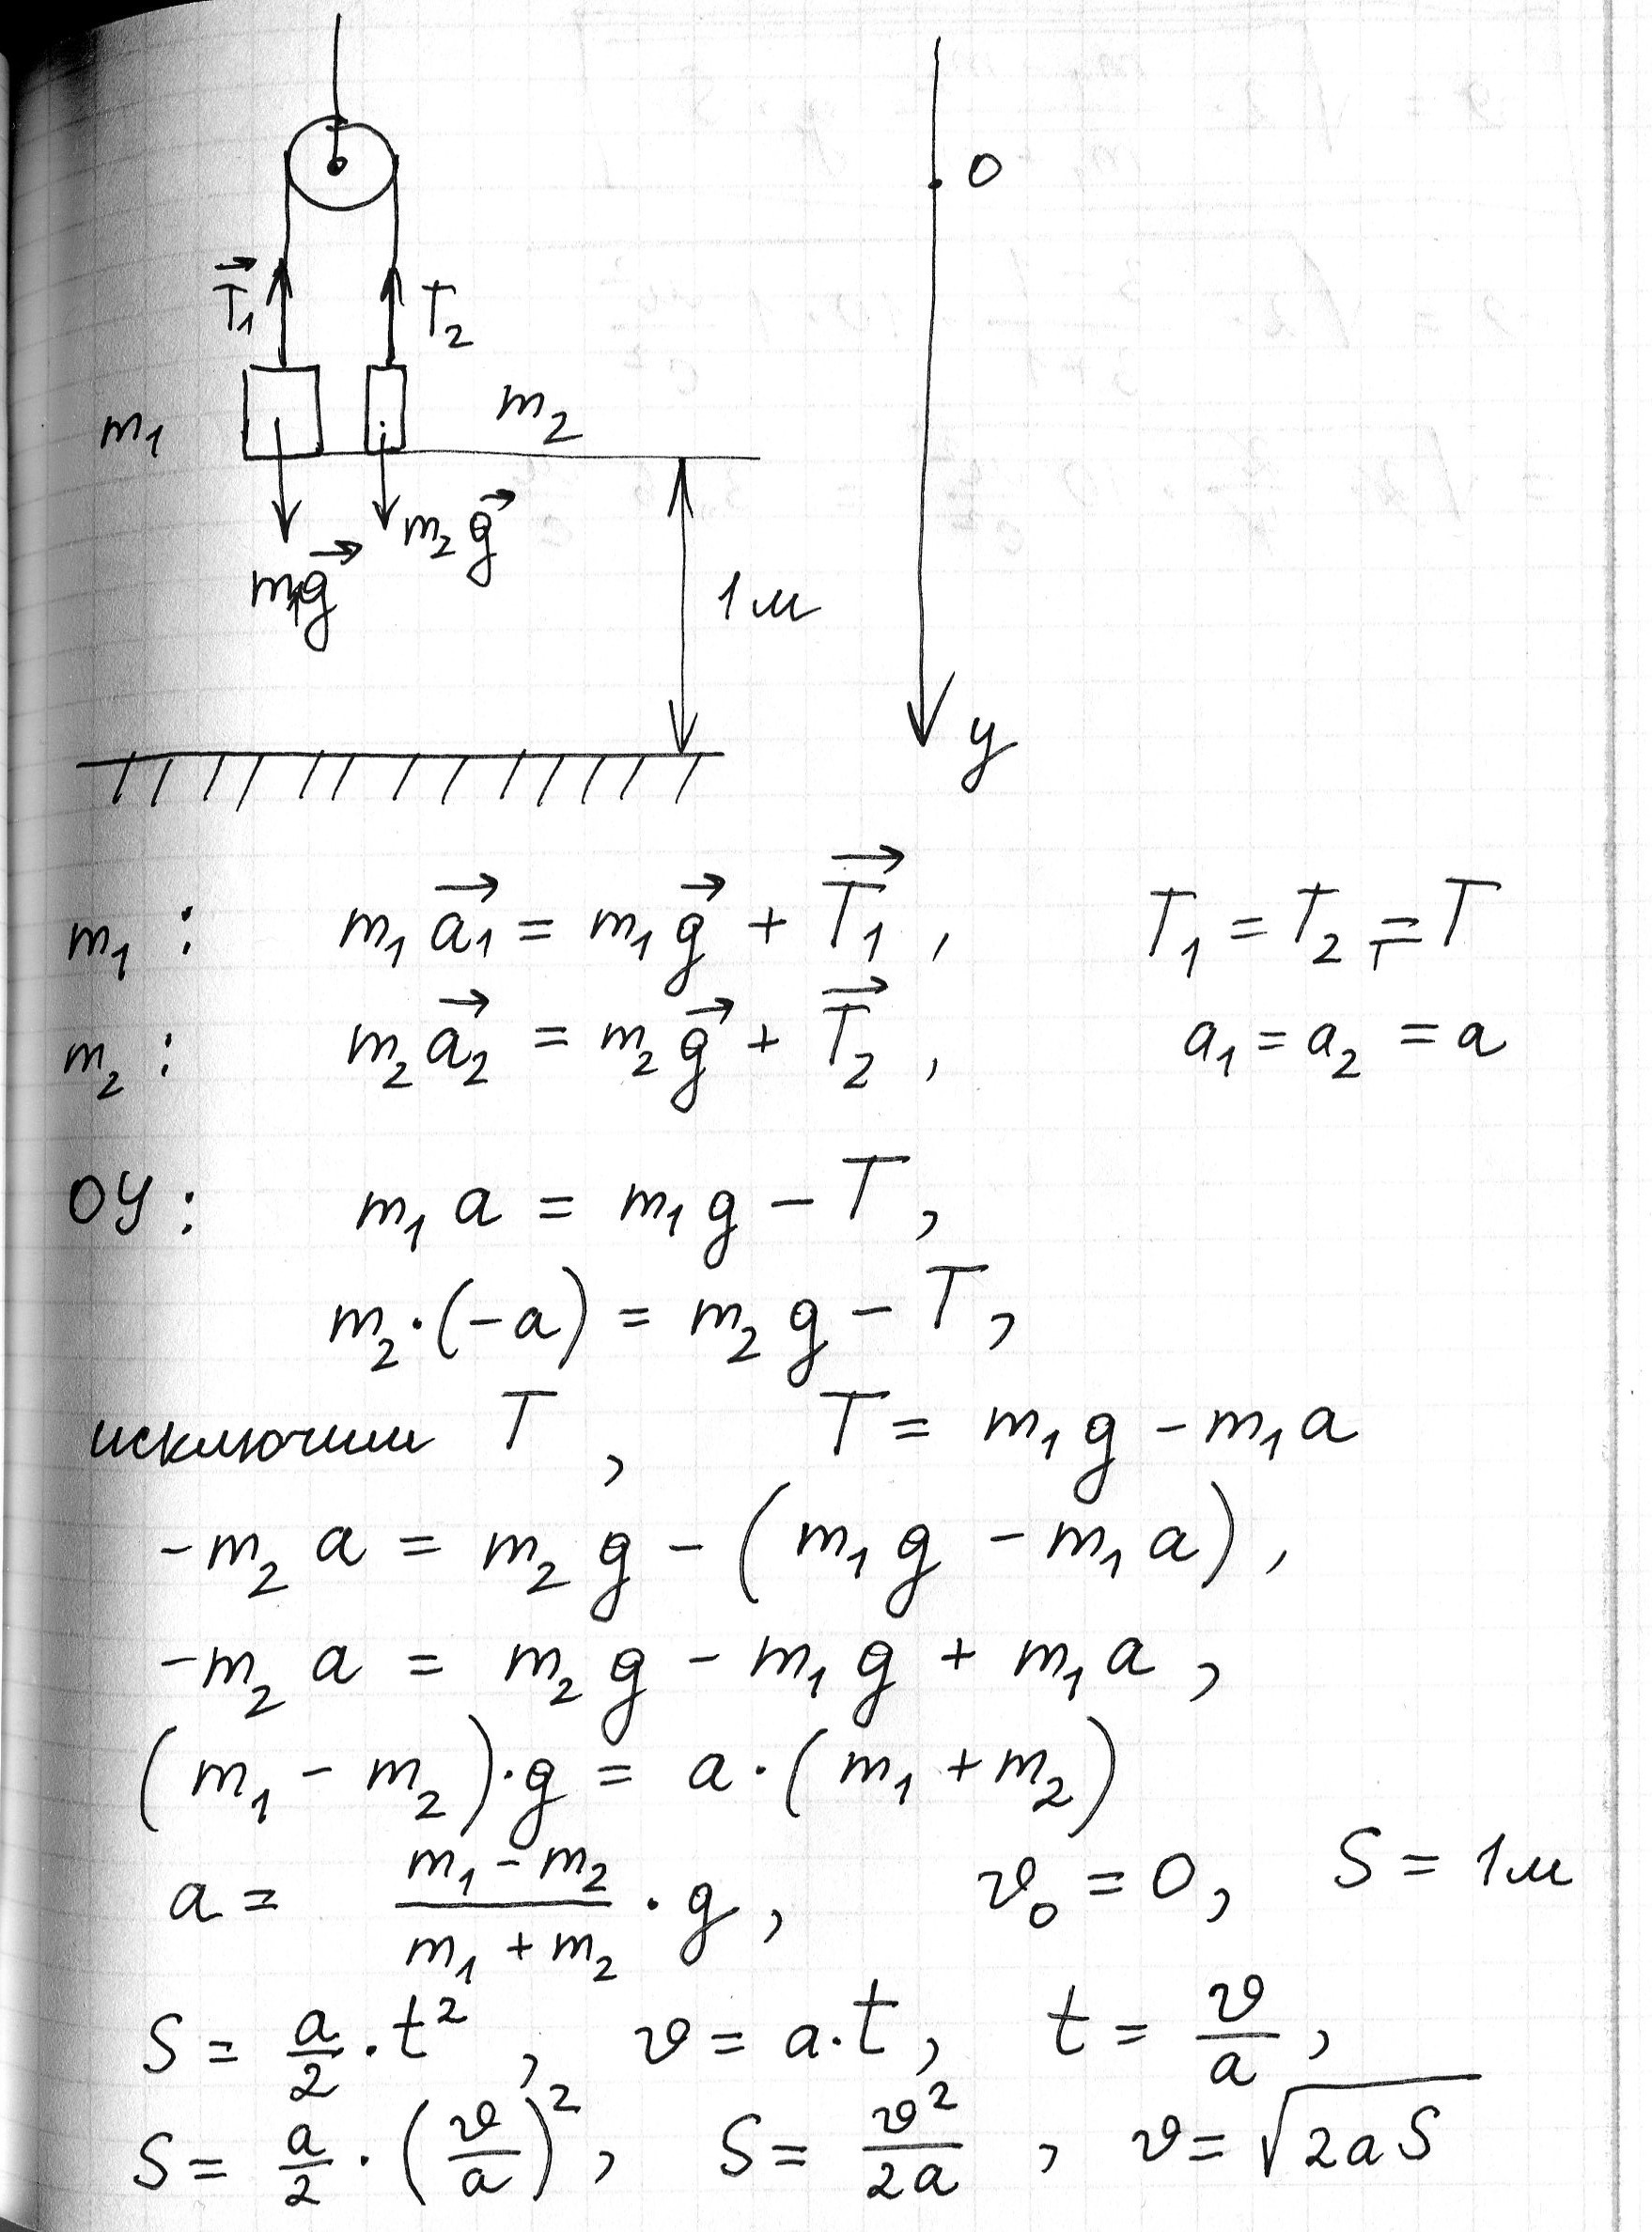 0
T⃗₁ T₂
m₁ m₂
m₂g⃗
m₁g⃗
1м
y
m₁: m₁a⃗₁ = m₁g⃗ + T⃗₁, T₁ = T₂ = T
m₂: m₂a⃗₂ = m₂g⃗ + T⃗₂, a₁ = a₂ = a
OY: m₁a = m₁g − T,
m₂·(−a) = m₂g − T,
исключим T, T = m₁g − m₁a
−m₂a = m₂g − (m₁g − m₁a),
−m₂a = m₂g − m₁g + m₁a,
(m₁ − m₂)·g = a·(m₁ + m₂)
a = (m₁ − m₂)/(m₁ + m₂) · g, v₀ = 0, S = 1м
S = a/2 · t², v = a·t, t = v/a,
S = a/2 · (v/a)², S = v²/2a, v = √(2aS)